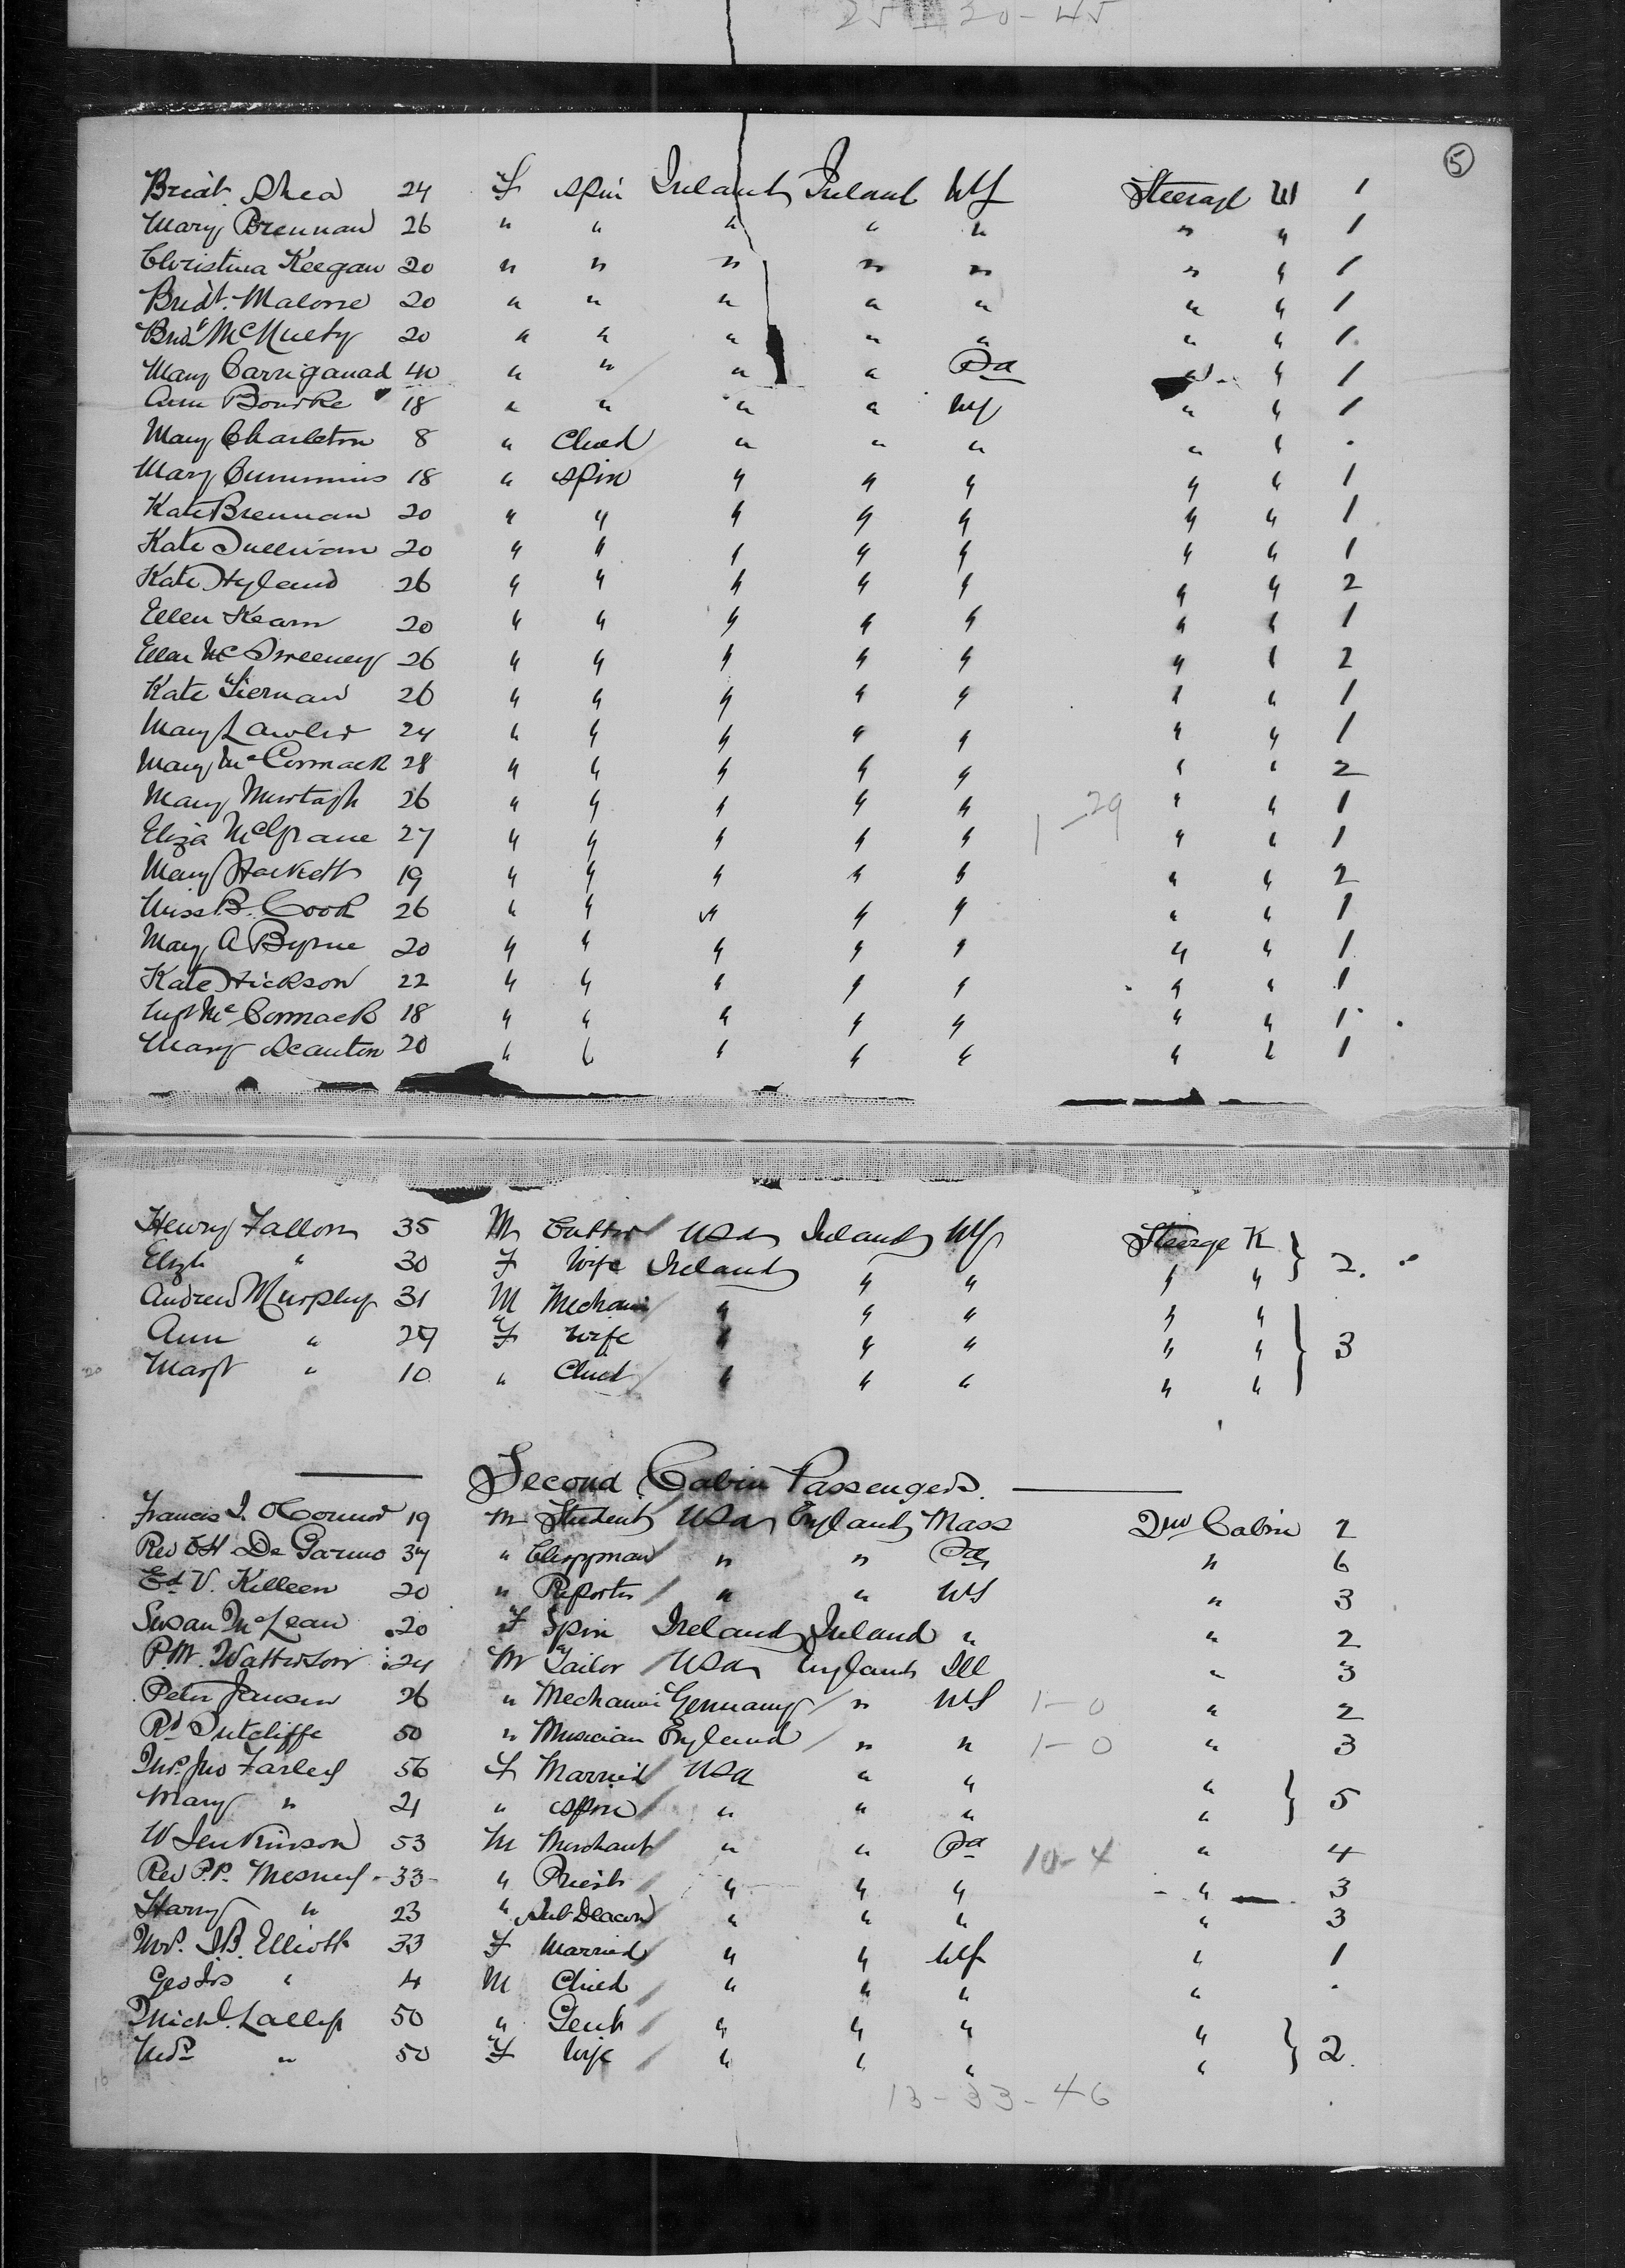 25 20-45
5
Bridt. Shea 24 F Spin Ireland Ireland NY Steerage W 1
Mary Brennan 26 " " " " " " " 1
Christina Keegan 20 " " " " " " " 1
Bridt. Malone 20 " " " " " " " 1
Bridt McNulty 20 " " " " " " " 1
Mary 40 " " " " Pa " " 1
Ann Bourke 18 " " " " NY " " 1
Mary Charleton 8 " Child " " " " "
Mary Cummins 18 " Spin " " " " " 1
Kate Brennan 20 " " " " " " " 1
Kate Sullivan 20 " " " " " " " 1
Kate Hyland 26 " " " " " " " 2
Ellen Kearn 20 " " " " " " " 1
Ellen McSweeney 26 " " " " " " " 2
Kate Tiernan 26 " " " " " " " 1
Mary Lawler 24 " " " " " " " 1
Mary McCormack 28 " " " " " " " 2
Mary Murtagh 26 " " " " " 1-29 " " 1
Eliza McGrane 27 " " " " " " " 1
Mary Hackett 19 " " " " " " " 2
Miss B. Cook 26 " " " " " " " 1
Mary A Byrne 20 " " " " " " " 1
Kate Hickson 22 " " " " " " " 1
McCormack 18 " " " " " " " 1
Mary Scanton 20 " " " " " " " 1
Henry Fallon 35 M Cutter USA Ireland NY Steerge K 2.
Elizh " 30 F Wife Ireland " " " "
Andrew Murphy 31 M Mechanic " " " " " 3
Ann " 29 F Wife " " " " "
20 Margt " 10 " Child " " " " "
Second Cabin Passengers.
Francis J. OConnor 19 M Student USA England Mass 2nd Cabin 2
Rev De Garmo 37 " Clergyman " " Pa " 6
Ed V. Killeen 20 " Reporter " " NY " 3
Susan McLean 20 F Spin Ireland Ireland " " 2
P.M. Watterson 24 M Tailor USA England Ill " 3
Peter Jansen 26 " Mechanic Germany " NY 1-0 " 2
Rd Sutcliffe 50 " Musician England " " 1-0 " 3
Mrs. Jno Farley 56 F Married USA " " " 5
Mary " 21 " Spin " " " "
W Jenkinson 53 M Merchant " " Pa 10-4 " 4
Rev P.P. 33 " Priest " " " " 3
Harry " 23 " Sub Deacon " " " " 3
Mrs. J.B. Elliott 33 F Married " " NY " 1
Geo " 4 M Child " " " "
Michl. Lallly 50 " Gent " " " " 2.
Mrs " 50 F Wife " " " "
16 13-33-46